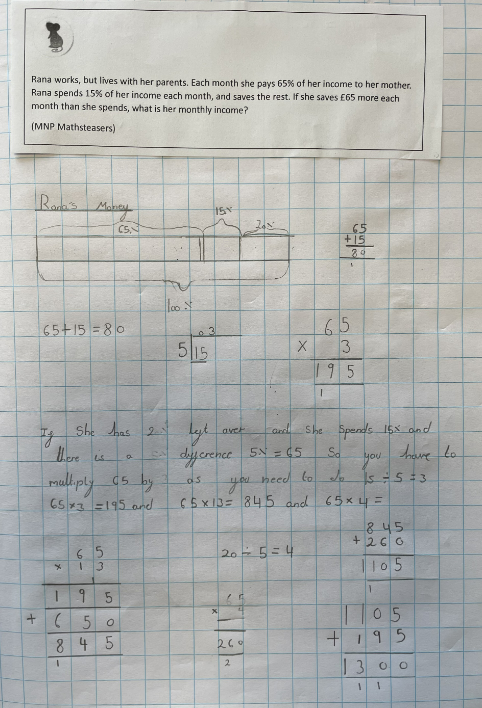 Rana works, but lives with her parents. Each month she pays 65% of her income to her mother.
Rana spends 15% of her income each month, and saves the rest. If she saves £65 more each
month than she spends, what is her monthly income?
(MNP Mathsteasers)
Rana's Money
65%
15%
20%
100%
65
+15
80
1
65+15=80
03
5 15
65
x 3
195
1
If She has 2 left over and she spends 15% and
there is a difference 5%=65 So you have to
multiply 65 by as you need to do 15÷5=3
65×3=195 and 65×13=845 and 65×4=
65
x 13
195
+ 650
845
1
20÷5=4
x
260
2
845
+260
1105
1
1105
+ 195
1300
1 1